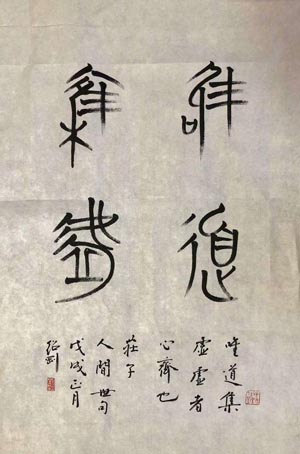 唯道
集虛
唯道集
虛虛者
心齋也
莊子
人間世句
戊戌正月